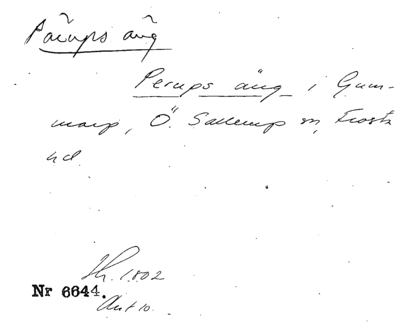 Pärups äng
Perups äng i Gum-
marp, Ö. Sallerup sn, Frosta
hd.
Sk. 1802
Nr 6644.
Akt 10.